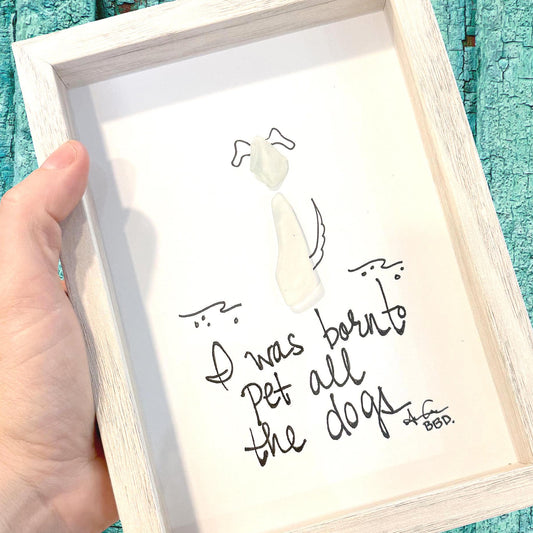 I was born to
pet all
the dogs
BBD.